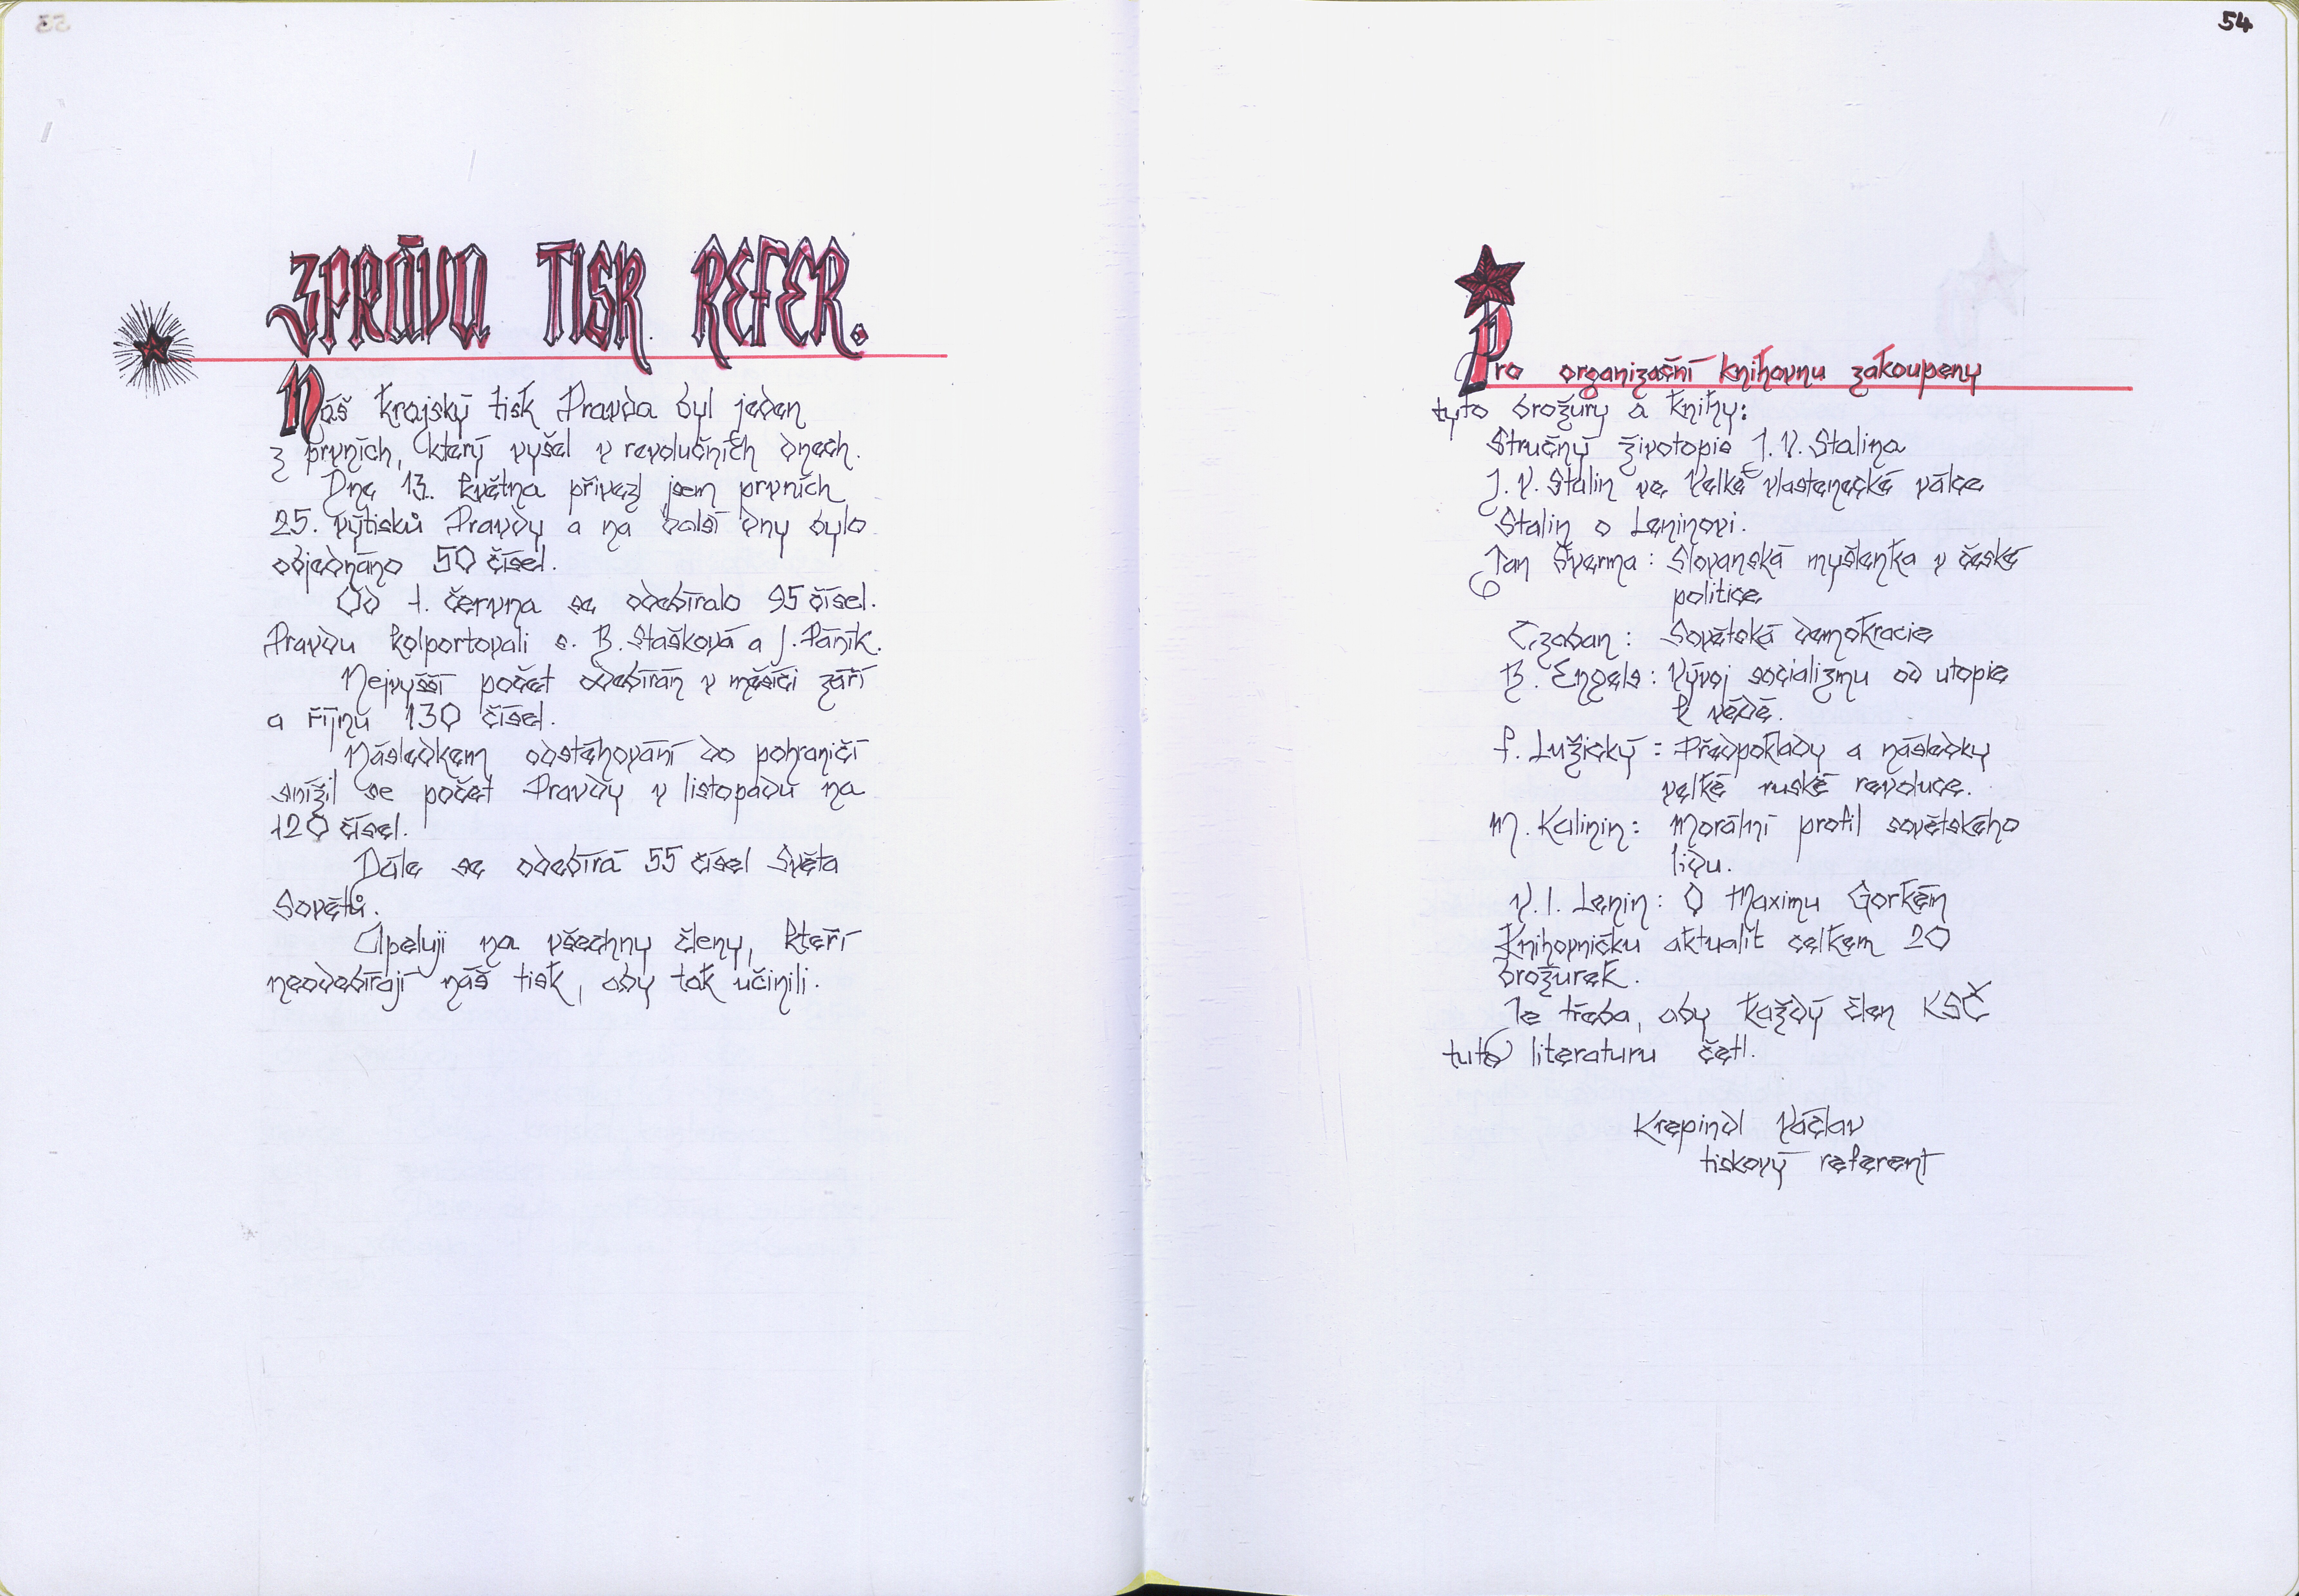 ZPRÁVA TISK. REFER.
Náš krajský tisk Pravda byl jeden
z prvních, který vyšel v revolučních dnech.
Dne 13. května přivezl jsem prvních
25. výtisků Pravdy a na další dny bylo
objednáno 50 čísel.
Od 1. června se odebíralo 95 čísel.
Pravdu kolportovali s. B. Stašková a J. Páník.
Nejvyšší počet odebírán v měsíci září
a říjnu 130 čísel.
Následkem odstěhování do pohraničí
snížil se počet Pravdy v listopadu na
120 čísel.
Dále se odebírá 55 čísel Světa
Sovětů.
Apeluji na všechny členy, kteří
neodebírají náš tisk, aby tak učinili.
54
Pro organizační knihovnu zakoupeny
tyto brožury a knihy:
Stručný životopis J. V. Stalina
J. V. Stalin ve Velké vlastenecké válce
Stalin o Leninovi.
Jan Šverma: Slovanská myšlenka v české
politice
Czaban: Sovětská demokracie
B. Engels: Vývoj socializmu od utopie
k vědě.
F. Lužický: Předpoklady a následky
velké ruské revoluce.
M. Kalinin: Morální profil sovětského
lidu.
V. I. Lenin: O Maximu Gorkém
Knihovničku aktualit celkem 20
brožurek.
Je třeba, aby každý člen KSČ
tuto literaturu četl.
Krepindl Václav
tiskový referent